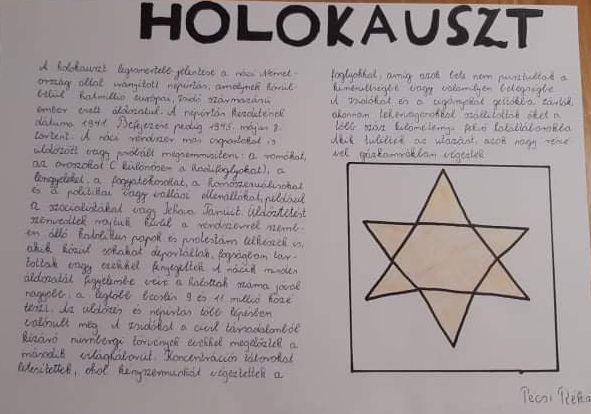 HOLOKAUSZT
A holokauszt legismertebb jelentése a náci Német-
ország által irányított népirtás, amelynek körül-
belül hatmillió európai, zsidó származású
ember esett áldozatul. A népirtás kezdetének
dátuma 1941. Befejezése pedig 1945. május 8.
történt. A náci rendszer más csoportokat is
üldözött vagy próbált megsemmisíteni: a romákat,
az oroszokat (különösen a hadifoglyokat), a
lengyeleket, a fogyatékosokat, a homoszexuálisokat
és a politikai vagy vallási ellenállókat, például
a szocialistákat vagy Jehova Tanúit. Üldöztetést
szenvedtek rajtuk kívül a rendszerrel szem-
ben álló katolikus papok és protestáns lelkészek is,
akik közül sokakat deportáltak, fogságban tar-
tottak vagy ezekkel fenyegettek. A nácik minden
áldozatát figyelembe véve a halottak száma jóval
nagyobb, a legtöbb becslés 9 és 11 millió közé
teszi. Az üldözés és népirtás több lépésben
valósult meg. A zsidókat a civil társadalomból
kizáró nürnbergi törvények évekkel megelőzték a
második világháborút. Koncentrációs táborokat
létesítettek, ahol kényszermunkát végeztettek a
foglyokkal, amíg azok bele nem pusztultak a
kimerültségbe vagy valamilyen betegségbe.
A zsidókat és a cigányokat gettókba zárták,
ahonnan tehervagonokkal szállították őket a
több száz kilométernyi
Akik túlélték az utazást, azok nagy része
vel gázkamrákban végeztek
Pécsi Réka